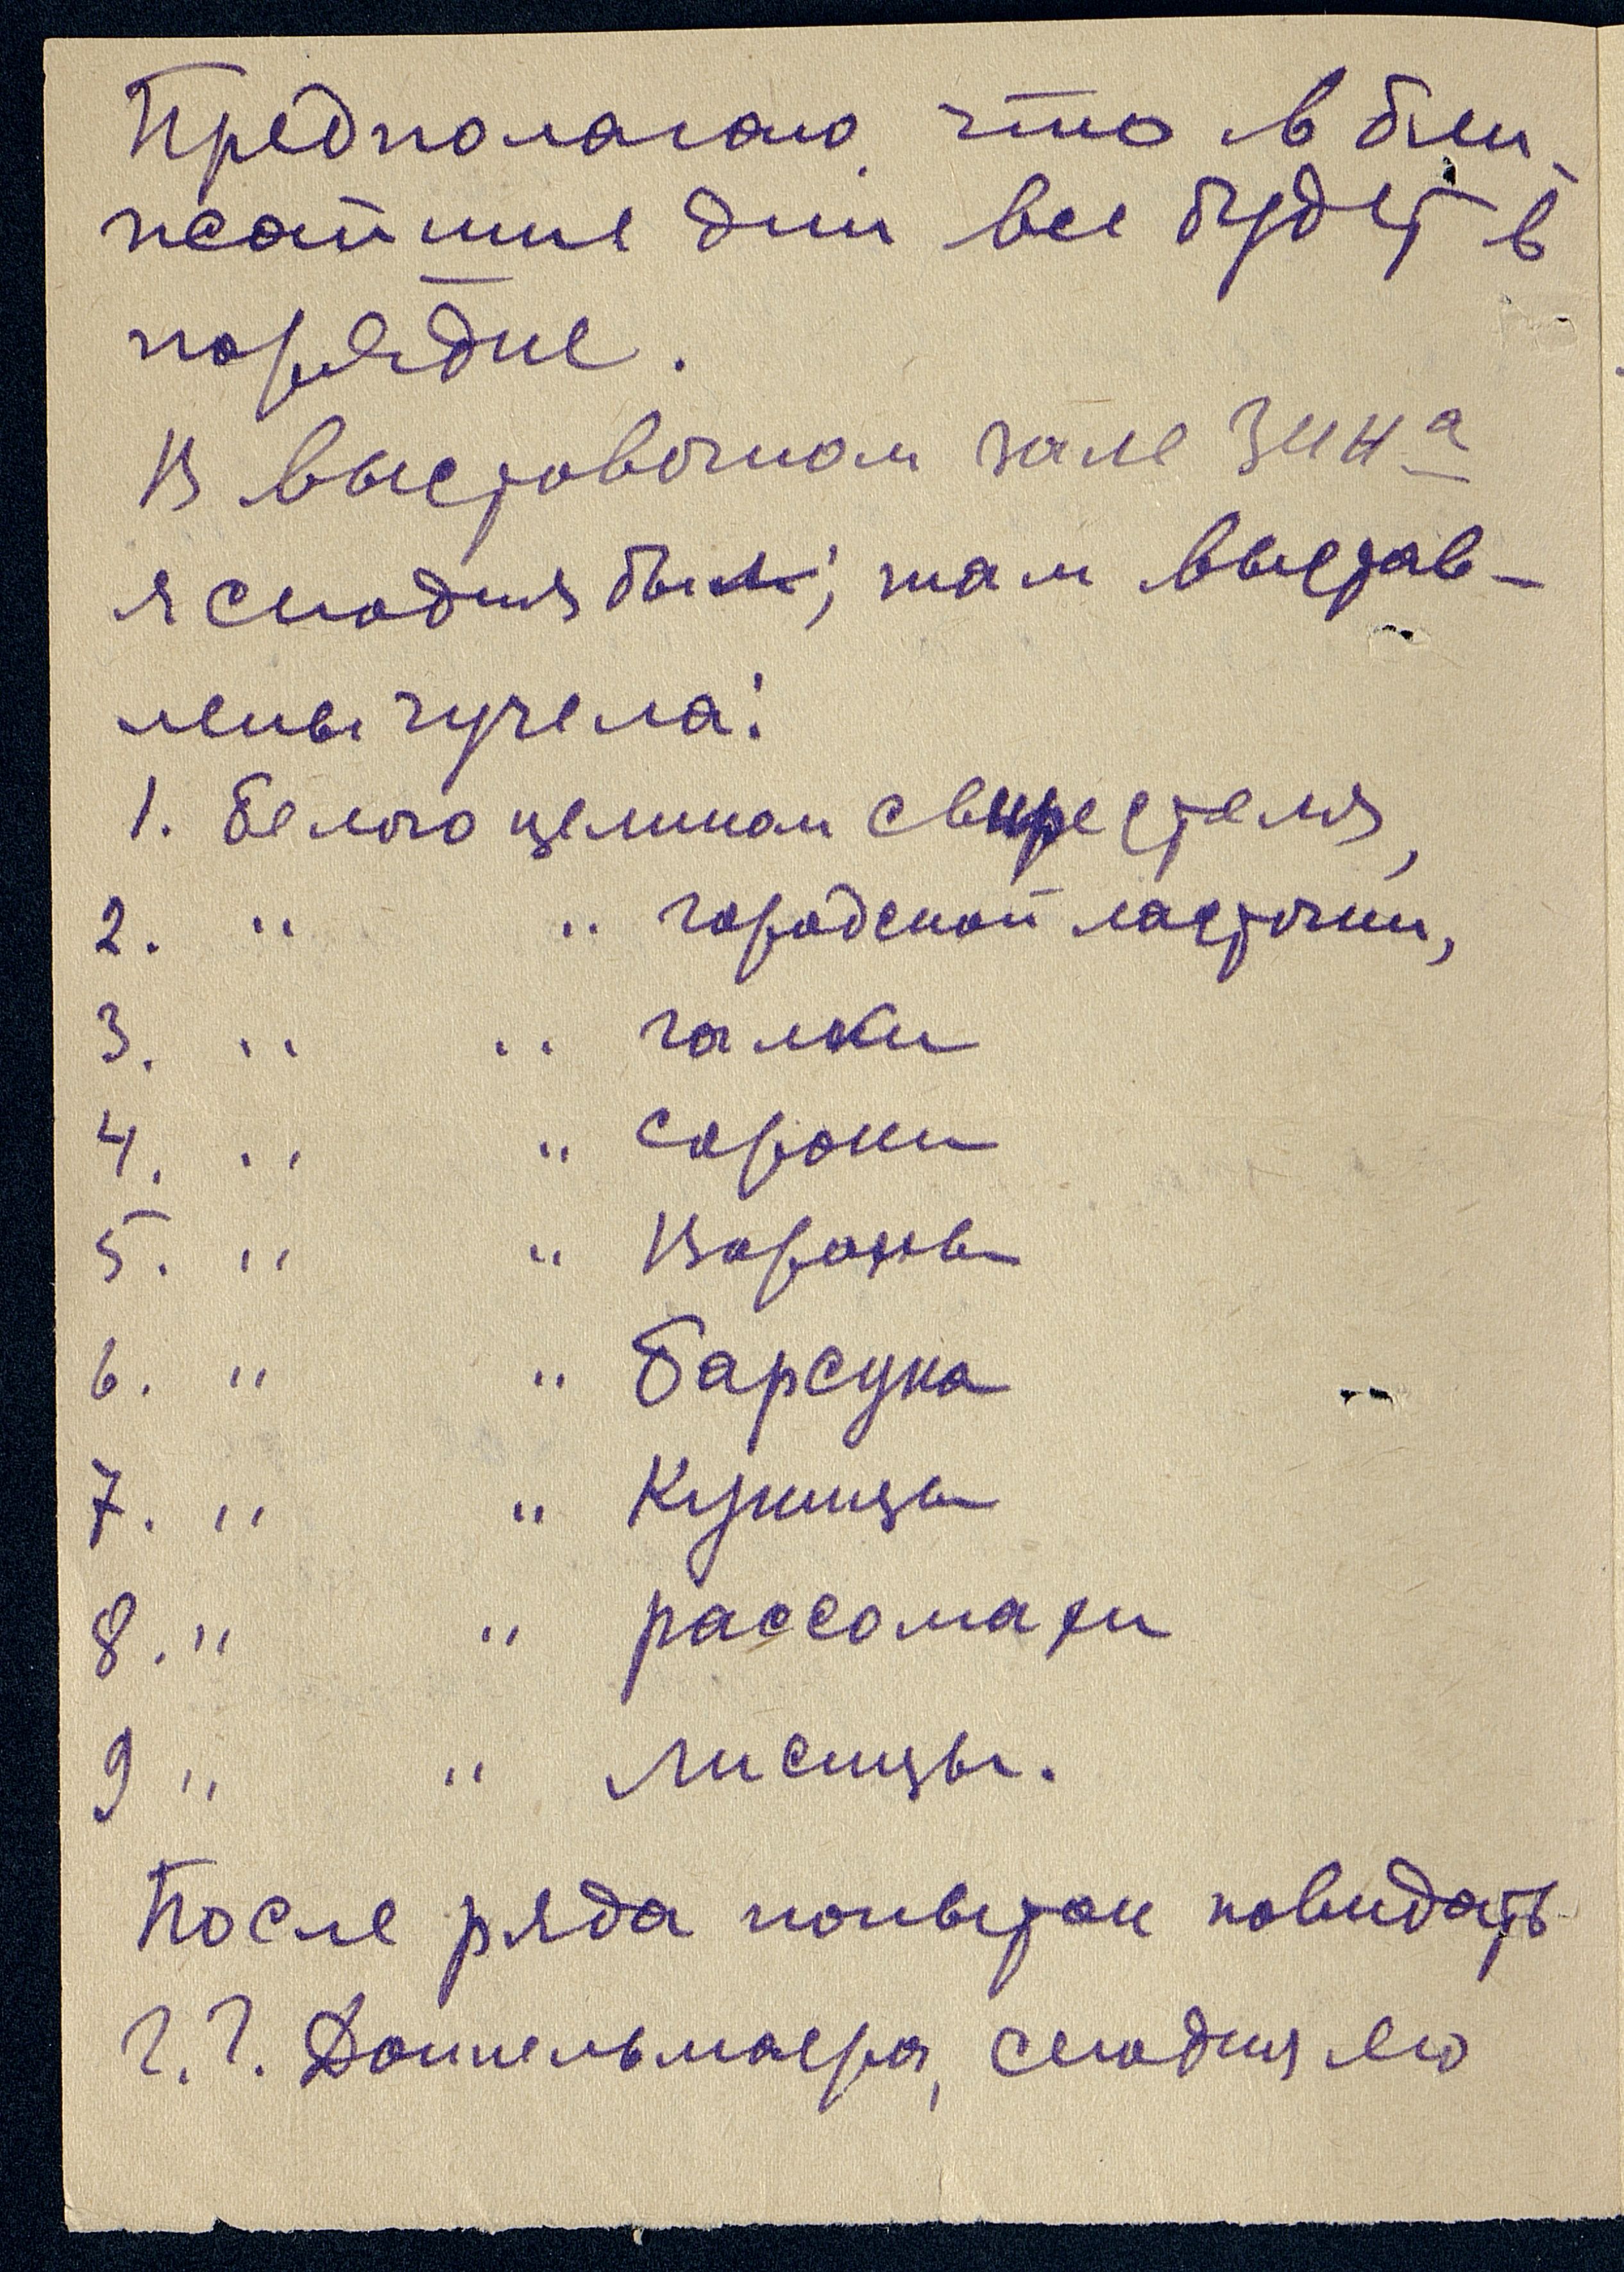 Предполагаю что в бли-
жайшие дни все будет в
порядке.
В выставочном зале Зин-а
я сегодня был; там выстав-
лены чучела:
1. Белого целиком свиристеля,
2. " " городской ласточки,
3. " " галки
4. " " сороки
5. " " Вороны
6. " " Барсука
7. " " Куницы
8. " " рассомахи
9 " " лисицы.
После ряда попыток повидать
Г.Г. Доппельмаера, сегодня его